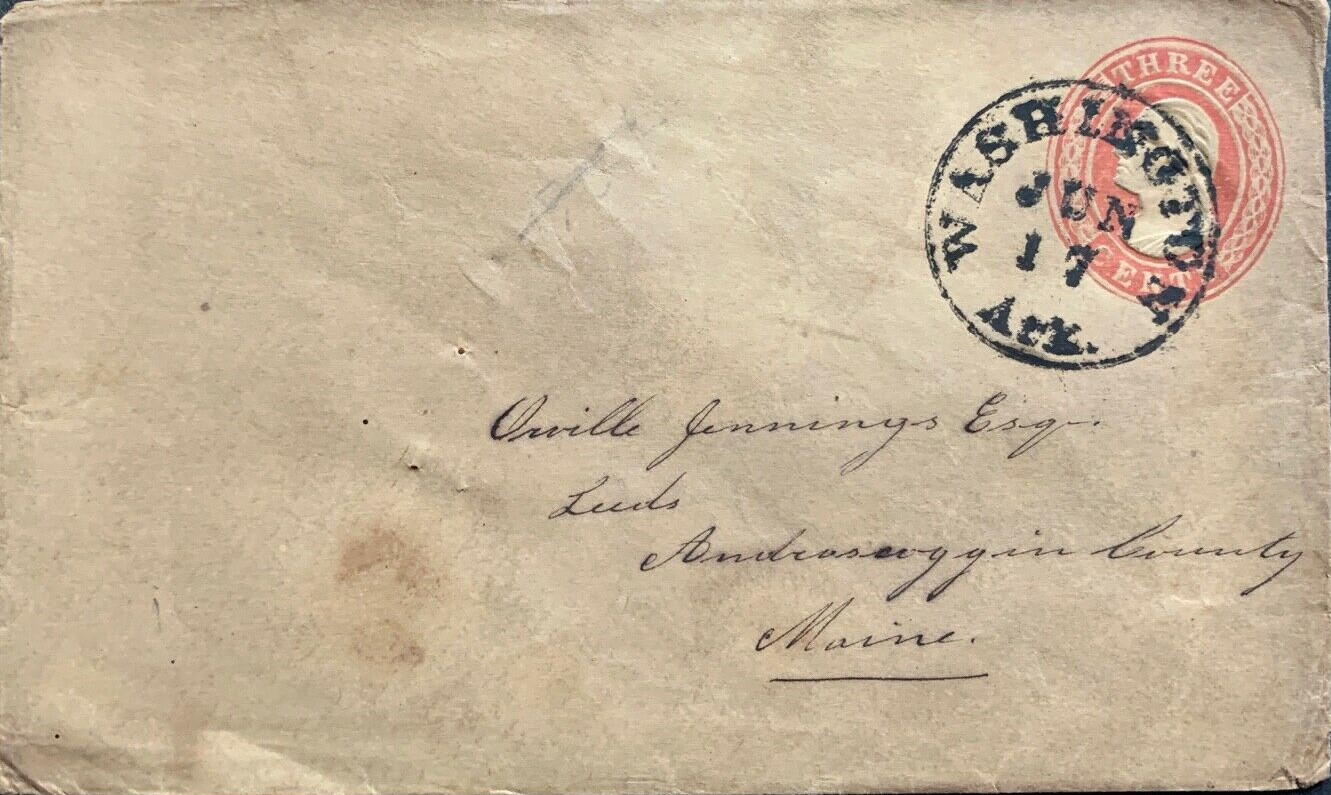 THREE
CENTS
WASHINGTON
JUN
17
Ark.
Orville Jennings Esqr.
Leeds
Androscoggin County
Maine.